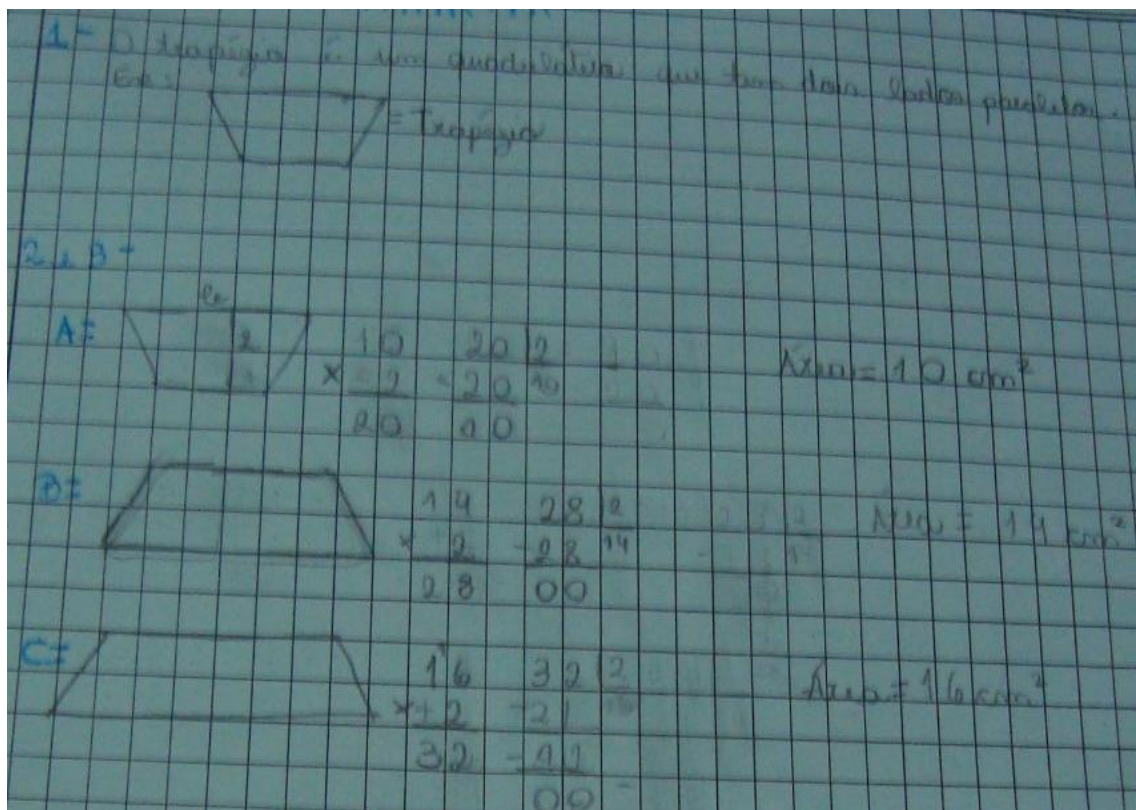 1- O trapézio é um quadrilátero que tem dois lados paralelos.
Ex:
= Trapézio
2 e 3-
A=
2
10 20 2
x 2 -20 10
20 00
Área = 10 cm²
B=
14 28 2
x 2 -28 14
28 00
Área = 14 cm²
C=
16 32 2
x 2
32 -12
00
Área = 16 cm²